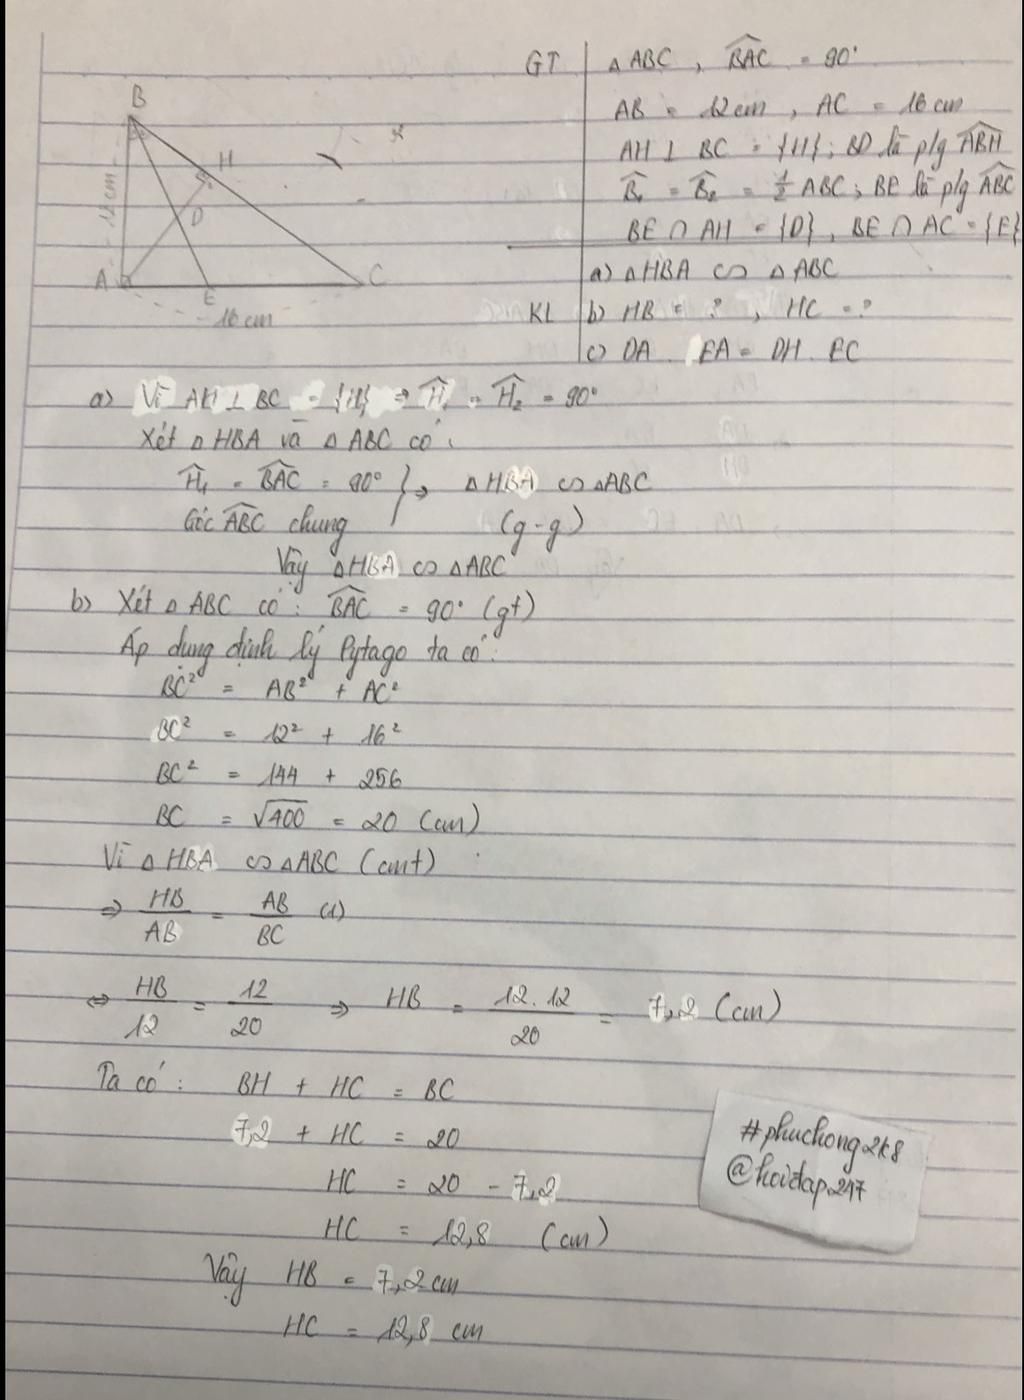 B
H
D
A
E
C
12cm
16 cm
GT
Δ ABC , BAC = 90°
AB = 12cm , AC = 16 cm
AH ⊥ BC = {H} ; BD là p/g ABH
B₁ = B₂ = 1/2 ABC ; BE là p/g ABC
BE ∩ AH = {D} , BE ∩ AC = {E}
a) Δ HBA ∽ Δ ABC
KL b) HB = ? , HC = ?
c) DA . EA = DH . EC
a) Vì AH ⊥ BC = {H} ⇒ H₁ = H₂ = 90°
Xét Δ HBA và Δ ABC có:
H₁ = BAC = 90° } ⇒ Δ HBA ∽ Δ ABC
Góc ABC chung (g-g)
Vậy Δ HBA ∽ Δ ABC
b) Xét Δ ABC có : BAC = 90° (gt)
Áp dụng định lý Pytago ta có:
BC² = AB² + AC²
BC² = 12² + 16²
BC² = 144 + 256
BC = √400 = 20 (cm)
Vì Δ HBA ∽ Δ ABC (cmt)
⇒ HB/AB = AB/BC (1)
⇔ HB/12 = 12/20 ⇒ HB = 12.12/20 = 7,2 (cm)
Ta có : BH + HC = BC
7,2 + HC = 20
HC = 20 - 7,2
HC = 12,8 (cm)
Vậy HB = 7,2 cm
HC = 12,8 cm
#phuchong2k8
@hoidap247